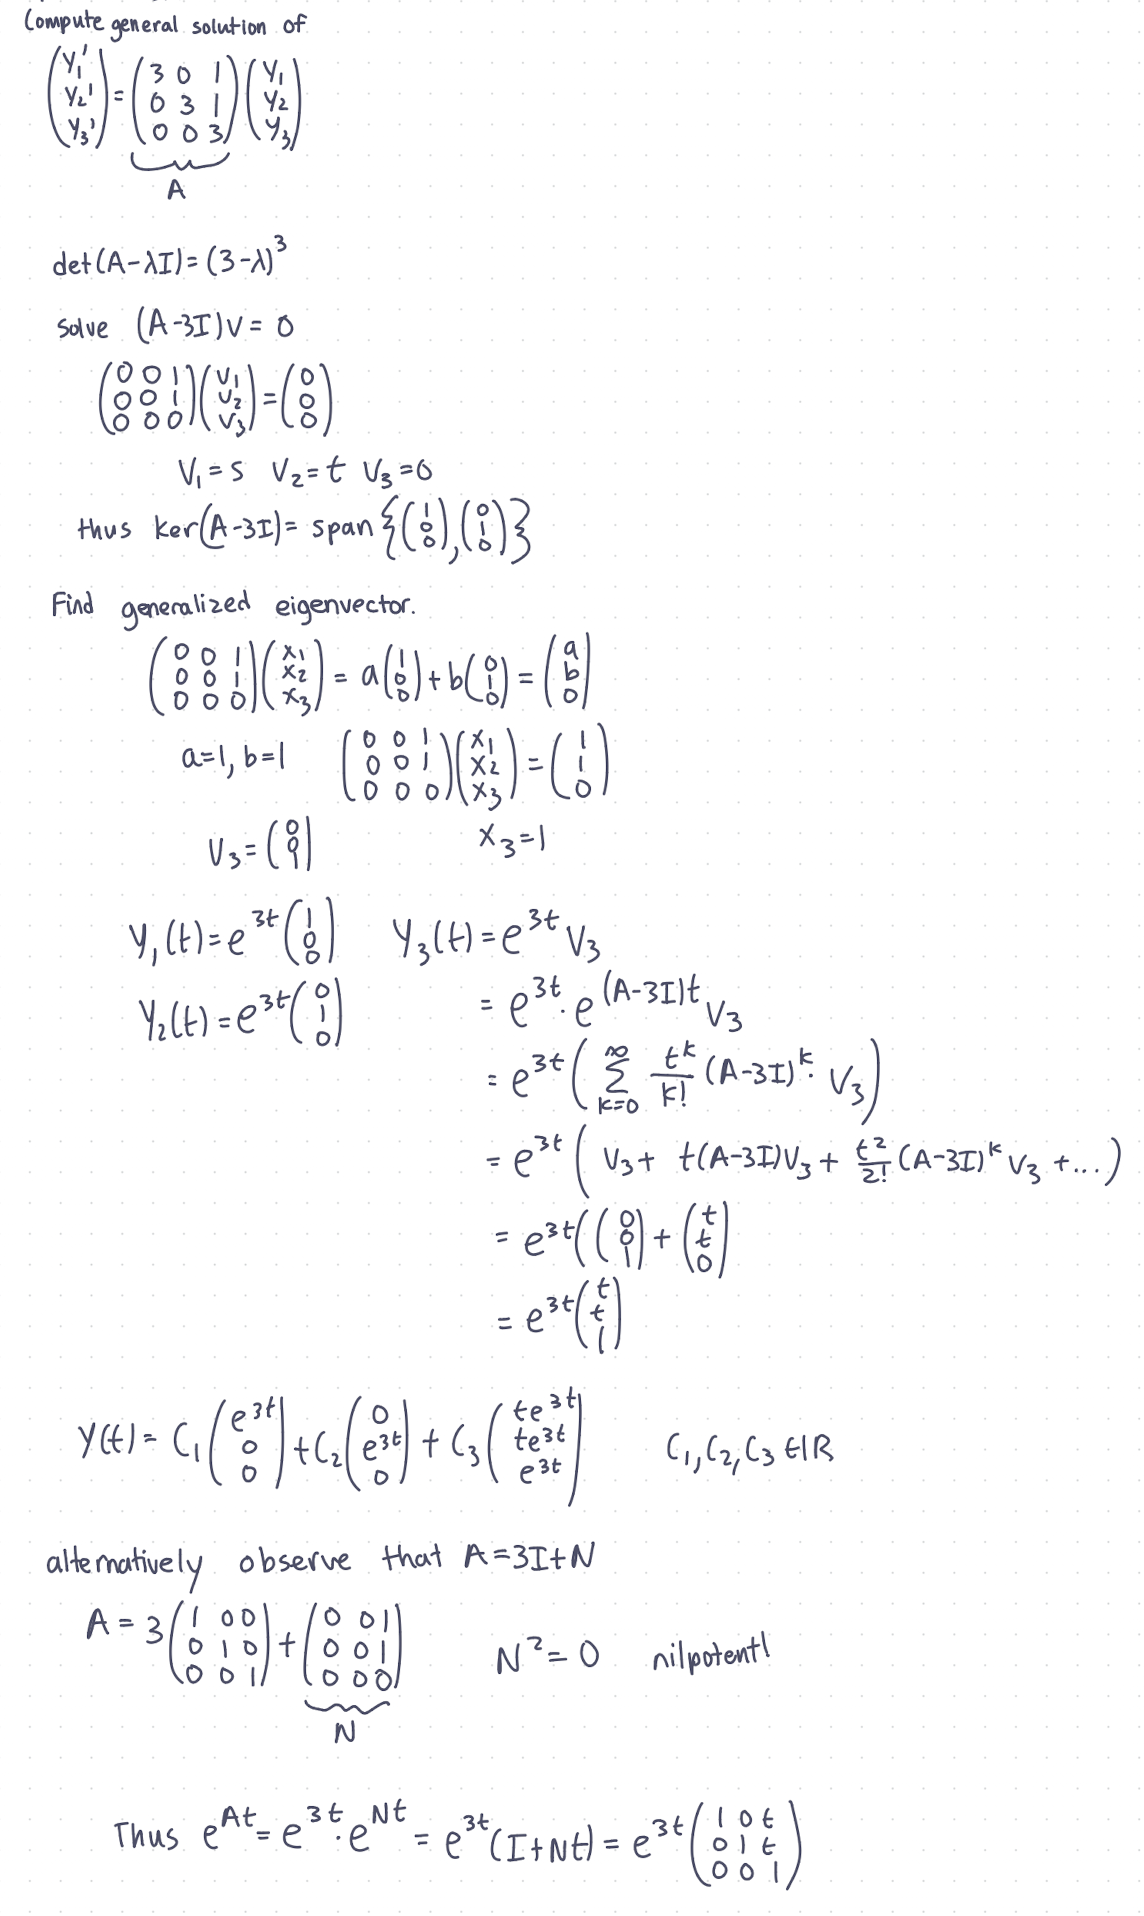 Compute general solution of
(y₁' y₂' y₃') = (3 0 1 / 0 3 1 / 0 0 3) (y₁ y₂ y₃)
A
det(A-λI) = (3-λ)³
Solve (A-3I)v = 0
(0 0 1 / 0 0 1 / 0 0 0) (v₁ v₂ v₃) = (0 0 0)
v₁ = s v₂ = t v₃ = 0
thus ker(A-3I) = span {(1 0 0), (0 1 0)}
Find generalized eigenvector.
(0 0 1 / 0 0 1 / 0 0 0) (x₁ x₂ x₃) = a(1 0 0) + b(0 1 0) = (a b 0)
a=1, b=1 (0 0 1 / 0 0 1 / 0 0 0) (x₁ x₂ x₃) = (1 1 0)
v₃ = (0 0 1) x₃ = 1
y₁(t) = e^{3t} (1 0 0) y₃(t) = e^{3t} v₃
y₂(t) = e^{3t} (0 1 0) = e^{3t} · e^{(A-3I)t} v₃
= e^{3t} ( ∑_{k=0}^{∞} t^k/k! (A-3I)^k · v₃ )
= e^{3t} ( v₃ + t(A-3I)v₃ + t²/2! (A-3I)^k v₃ + ... )
= e^{3t} ( (0 0 1) + (t t 0)
= e^{3t} (t t 1)
y(t) = C₁ (e^{3t} 0 0) + C₂ (0 e^{3t} 0) + C₃ (te^{3t} te^{3t} e^{3t}) C₁, C₂, C₃ ∈ ℝ
alternatively observe that A = 3I + N
A = 3 (1 0 0 / 0 1 0 / 0 0 1) + (0 0 1 / 0 0 1 / 0 0 0) N² = 0 nilpotent!
N
Thus e^{At} = e^{3t} · e^{Nt} = e^{3t} (I + Nt) = e^{3t} (1 0 t / 0 1 t / 0 0 1)